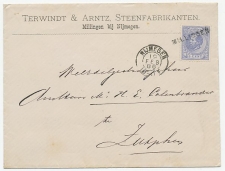 TERWINDT & ARNTZ, STEENFABRIKANTEN
Millingen bij Nijmegen.
MILLINGEN
NIJMEGEN
Weledelgestrenge Heer
Mr. H. E. Colenbrander
te
Zutphen